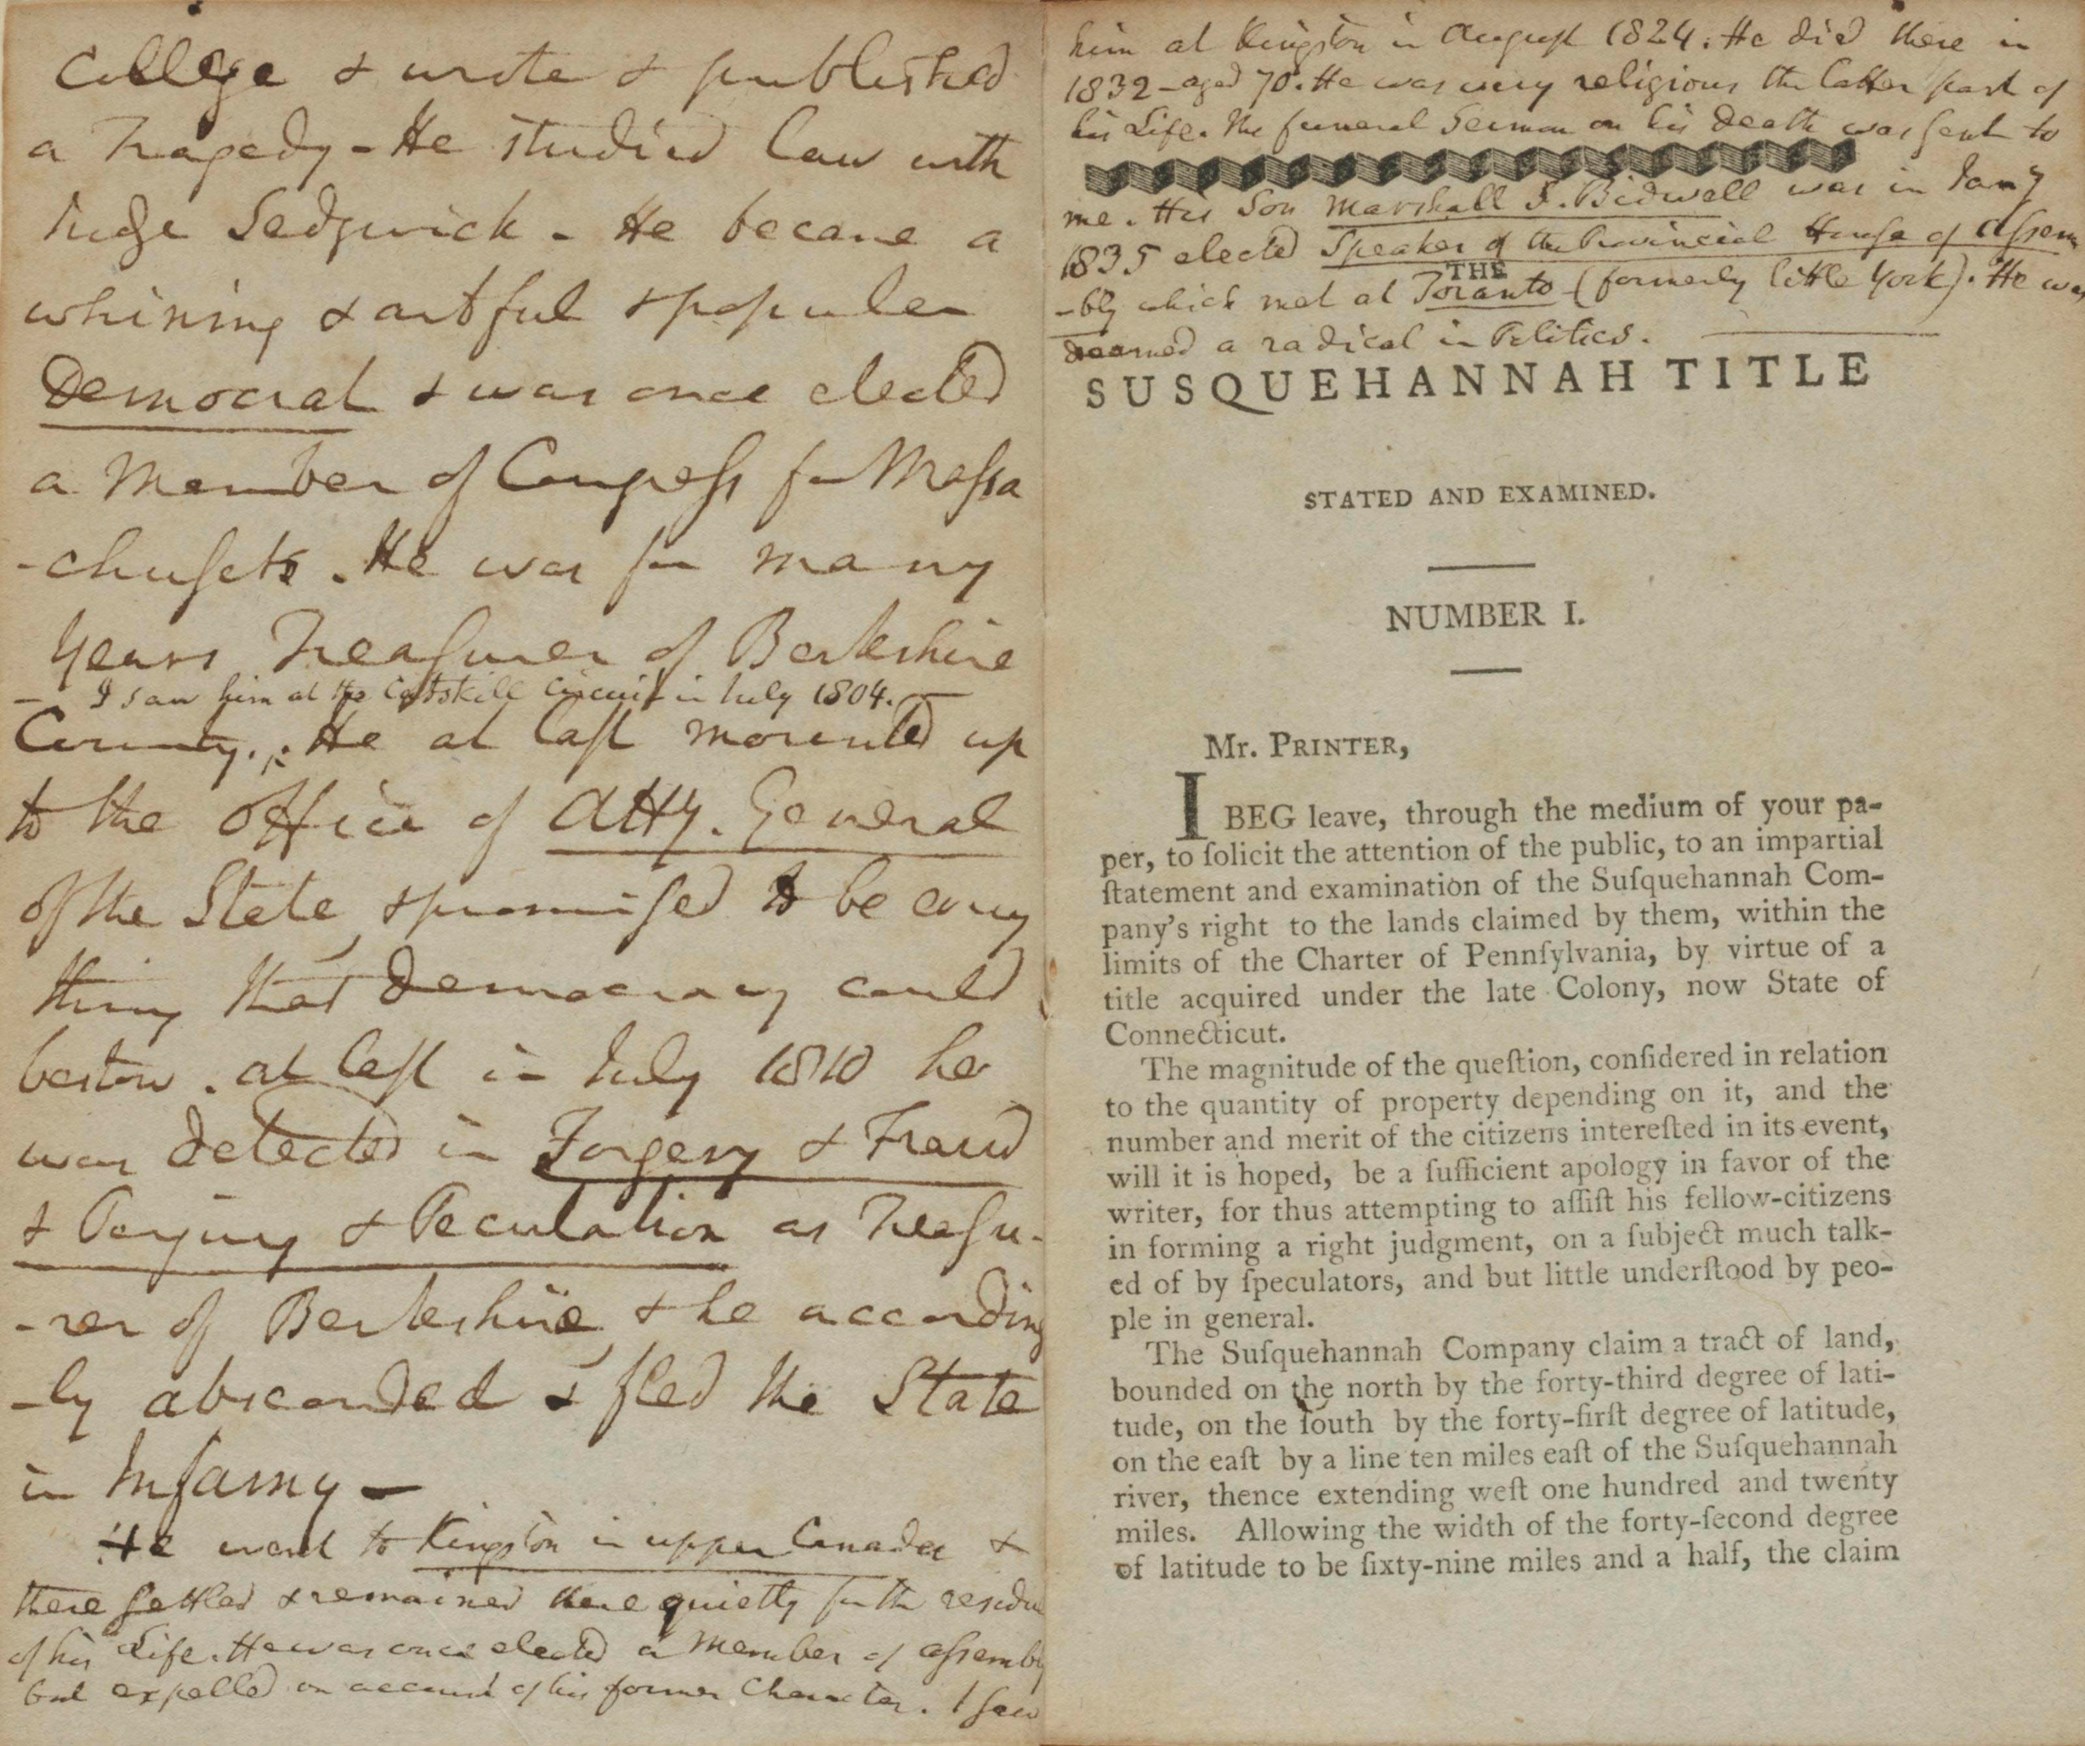 College & wrote & published
a Tragedy - He studied law with
Judge Sedgwick - He became a
whining & artful & popular
Democrat & was once elected
a Member of Congreſs for Maſsa
-chuſets. He was for many
years Treaſurer of Berkshire
- I saw him at the Catskill Circuit in July 1804. -
County. He at laſt mounted up
to the office of Atty. General
of the State, & promiſed to be every
thing that Democracy could
bestow. at laſt in July 1810 he
was detected in Forgery & Fraud
& Perjury & Peculation as Treaſu-
-rer of Berkshire, & he according
-ly absconded & fled the State
in Infamy -
He went to Kingston in upper Canada &
there ſettled & remained there quietly for the residue
of his Life. He was once elected a Member of aſsembly
but expelled on account of his former Character. I ſaw
him at Kingston in August 1824. He died there in
1832 - aged 70. He was very religious the latter part of
his Life. The funeral Sermon on his death was ſent to
me. His Son Marshall S. Bidwell was in Jany
1835 elected Speaker of the Provincial Houſe of Aſsem
-bly which met at Toranto (formerly little York). He was
deemed a radical in Politics.
THE
SUSQUEHANNAH TITLE
STATED AND EXAMINED.
NUMBER I.
Mr. PRINTER,
I BEG leave, through the medium of your pa-
per, to ſolicit the attention of the public, to an impartial
ſtatement and examination of the Suſquehannah Com-
pany's right to the lands claimed by them, within the
limits of the Charter of Pennſylvania, by virtue of a
title acquired under the late Colony, now State of
Connecticut.
The magnitude of the queſtion, conſidered in relation
to the quantity of property depending on it, and the
number and merit of the citizens intereſted in its event,
will it is hoped, be a ſufficient apology in favor of the
writer, for thus attempting to aſſiſt his fellow-citizens
in forming a right judgment, on a ſubject much talk-
ed of by ſpeculators, and but little underſtood by peo-
ple in general.
The Suſquehannah Company claim a tract of land,
bounded on the north by the forty-third degree of lati-
tude, on the ſouth by the forty-firſt degree of latitude,
on the eaſt by a line ten miles eaſt of the Suſquehannah
river, thence extending weſt one hundred and twenty
miles. Allowing the width of the forty-ſecond degree
of latitude to be ſixty-nine miles and a half, the claim